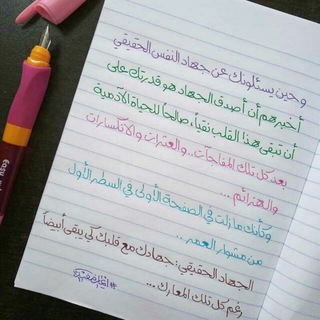 وحين يسئلونك عن جهاد النفس الحقيقي
أخبرهم أن أصدق الجهاد هو قدرتك على
أن تبقي هذا القلب نقياً، صالحاً للحياة الآدمية
بعد كل تلك المفاجآت.. والعثرات والانكسارات
والهزائم ...
وكأنك مازلت في الصفحة الأولى في السطر الأول
من مشوار العمر ..
الجهاد الحقيقي: جهادك مع قلبك كي يبقى أبيضاً
رغم كل تلك المعارك ...